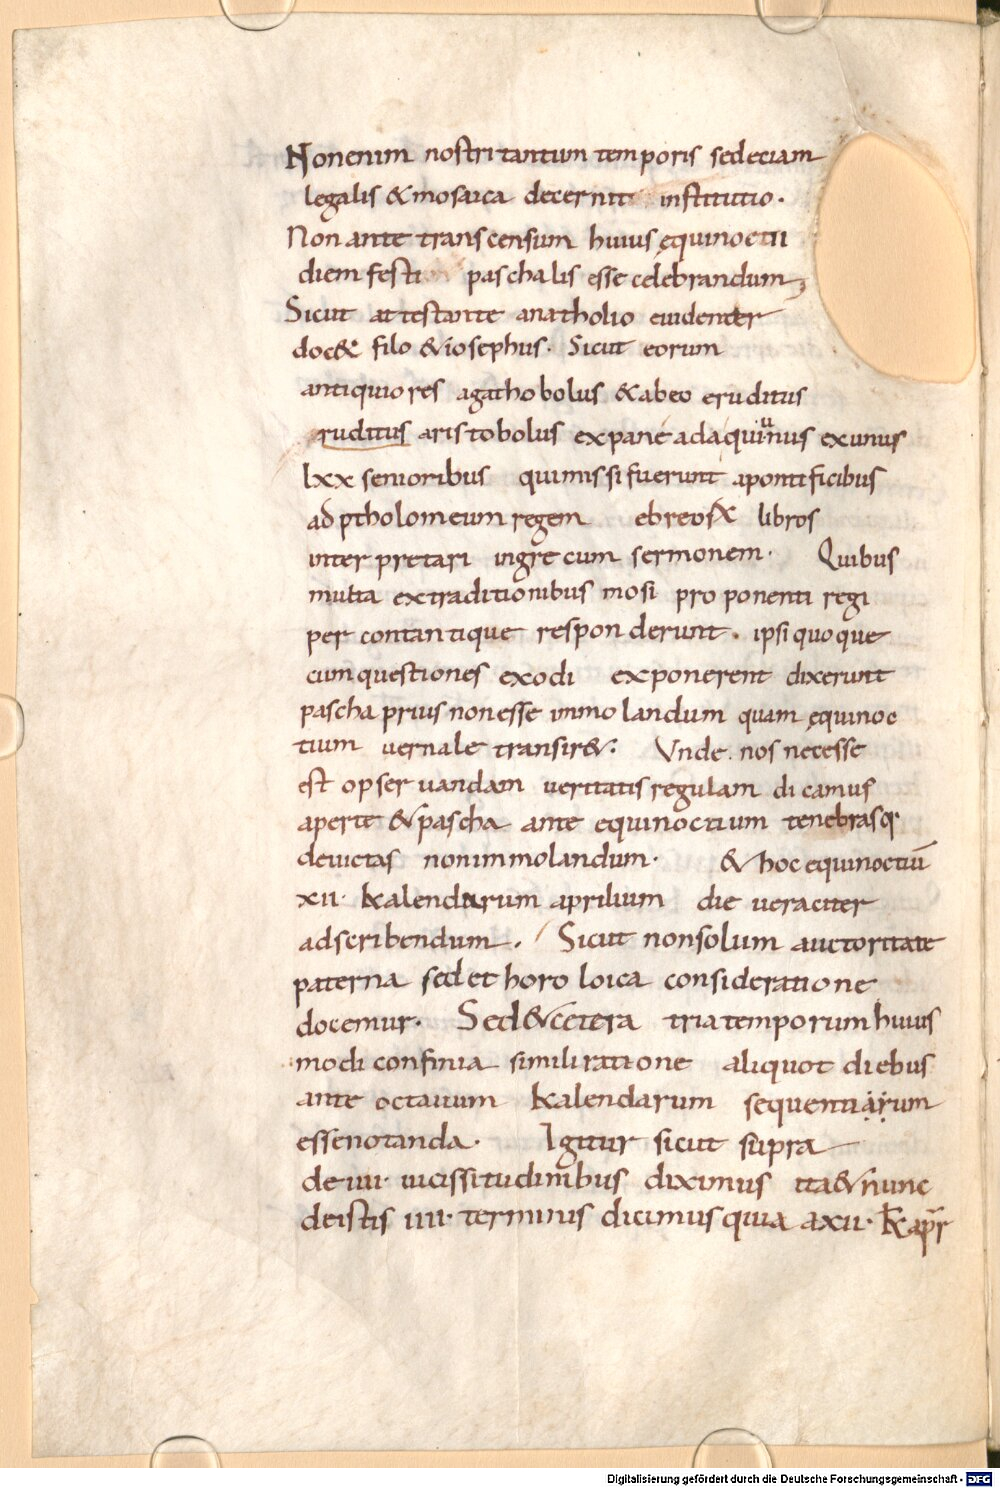 Nonenim nostri tantum temporis sed etiam
legalis & mosaica decernit institutio.
Non ante transcensum huius equinoctii
diem festi paschalis esse celebrandum,
Sicut attestante anatholio euidenter
doc& filo & iosephus. Sicut eorum
antiquiores agathobolus & abeo eruditus
ruditus aristobolus expane ada quinus exunus
lxx senioribus quimissi fuerunt apontificibus
ad ptholomeum regem ebreorx libros
interpretari ingrecum sermonem. Quibus
multa extraditionibus mosi proponenti regi
percontantique responderunt. ipsi quoque
cumquestiones exodi exponerent dixerunt
pascha prius nonesse immolandum quam ęquinoc
tium uernale transir&: Vnde nos necesse
est opseruandam ueritatis regulam dicamus
aperte & pascha ante equinoctium tenebrasq;
deuictas nonimmolandum. & hoc equinoctiū
xii. kalendarum aprilium die ueraciter
adscribendum. Sicut nonsolum auctoritate
paterna sed et horoloica consideratione
docemur. Sed & cetera tria temporum huius
modi confinia simili ratione aliquot diebus
ante octauum kalendarum sequentiarum
essenotanda. Igitur sicut supra
de iiii uicissitudinibus diximus ita & nunc
deistis iiii. terminis dicimus quia axii. k̄ apr̄
Digitalisierung gefördert durch die Deutsche Forschungsgemeinschaft - DFG